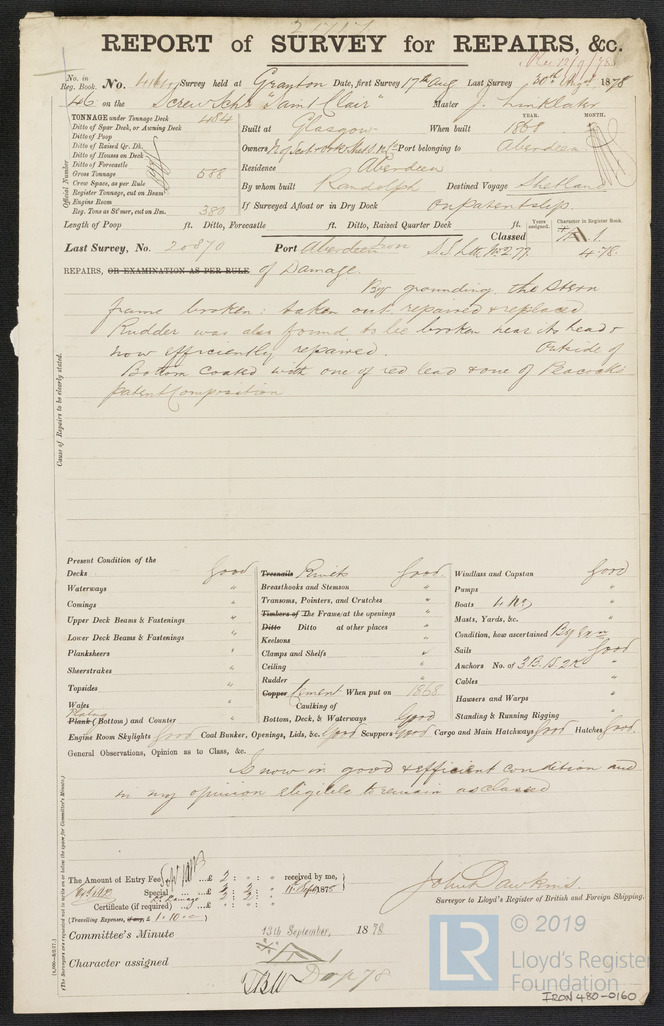 REPORT of SURVEY for REPAIRS, &c.
No. in Reg. Book. No. Survey held at Granton Date, first Survey 17th Aug Last Survey 30th Aug 1878
46 on the Screw Schr "Saint Clair" Master J. Linklater
TONNAGE under Tonnage Deck 484
Ditto of Spar Deck, or Awning Deck
Ditto of Poop
Ditto of Raised Qr. Dk.
Ditto of Houses on Deck
Ditto of Forecastle
Gross Tonnage 588
Crew Space, as per Rule
Register Tonnage, cut on Beam
Engine Room
Reg. Tons as St'mer, cut on Bm. 380
Official Number
Built at Glasgow When built YEAR. 1868 MONTH.
Owners Port belonging to Aberdeen
Residence Aberdeen
By whom built Randolph Destined Voyage Shetland
If Surveyed Afloat or in Dry Dock on patent slip.
Length of Poop ft. Ditto, Forecastle ft. Ditto, Raised Quarter Deck ft.
Years assigned. Character in Register Book.
Last Survey, No. 20870 Port Aberdeen Iron Classed A.1.
4.78.
REPAIRS, OR EXAMINATION AS PER RULE of Damage.
By grounding the Stern
frame broken: taken out repaired & replaced
Rudder was also found to be broken near its head &
now efficiently repaired. Outside of
Bottom Coated with one of red lead & one of Peacocks
patent Composition
Cause of Repairs to be clearly stated.
Present Condition of the
Decks Good
Waterways "
Comings "
Upper Deck Beams & Fastenings "
Lower Deck Beams & Fastenings "
Planksheers "
Sheerstrakes "
Topsides "
Wales "
Plating
Plank (Bottom) and Counter "
Treenails Rivets Good.
Breasthooks and Stemson "
Transoms, Pointers, and Crutches "
Timbers of The Frame at the openings "
Ditto Ditto at other places "
Keelsons "
Clamps and Shelfs
Ceiling "
Rudder "
Copper Cement When put on 1868
Caulking of
Bottom, Deck, & Waterways Good
Windlass and Capstan Good
Pumps "
Boats 4 No "
Masts, Yards, &c. "
Condition, how ascertained By Exn
Sails Good
Anchors No. of 3 B. 1 S. 2 K "
Cables "
Hawsers and Warps "
Standing & Running Rigging "
Engine Room Skylights Good Coal Bunker, Openings, Lids, &c. Good Scuppers Good Cargo and Main Hatchways Good Hatches Good.
General Observations, Opinion as to Class, &c.
Is now in good & efficient condition and
in my opinion eligible to remain as classed
The Amount of Entry Fee £ 2 : " : " received by me,
Special £ 2 : 2 : "
Damage
Certificate (if required) £ 2 : 2 : "
(Travelling Expenses, if any, £ 1.10.0)
John Dawkins.
Surveyor to Lloyd's Register of British and Foreign Shipping.
Committee's Minute 13th September, 1878
Character assigned
(The Surveyors are requested not to write on or below the space for Committee's Minute.)
© 2019
LR
Lloyd's Register
Foundation
IRON 480-0160